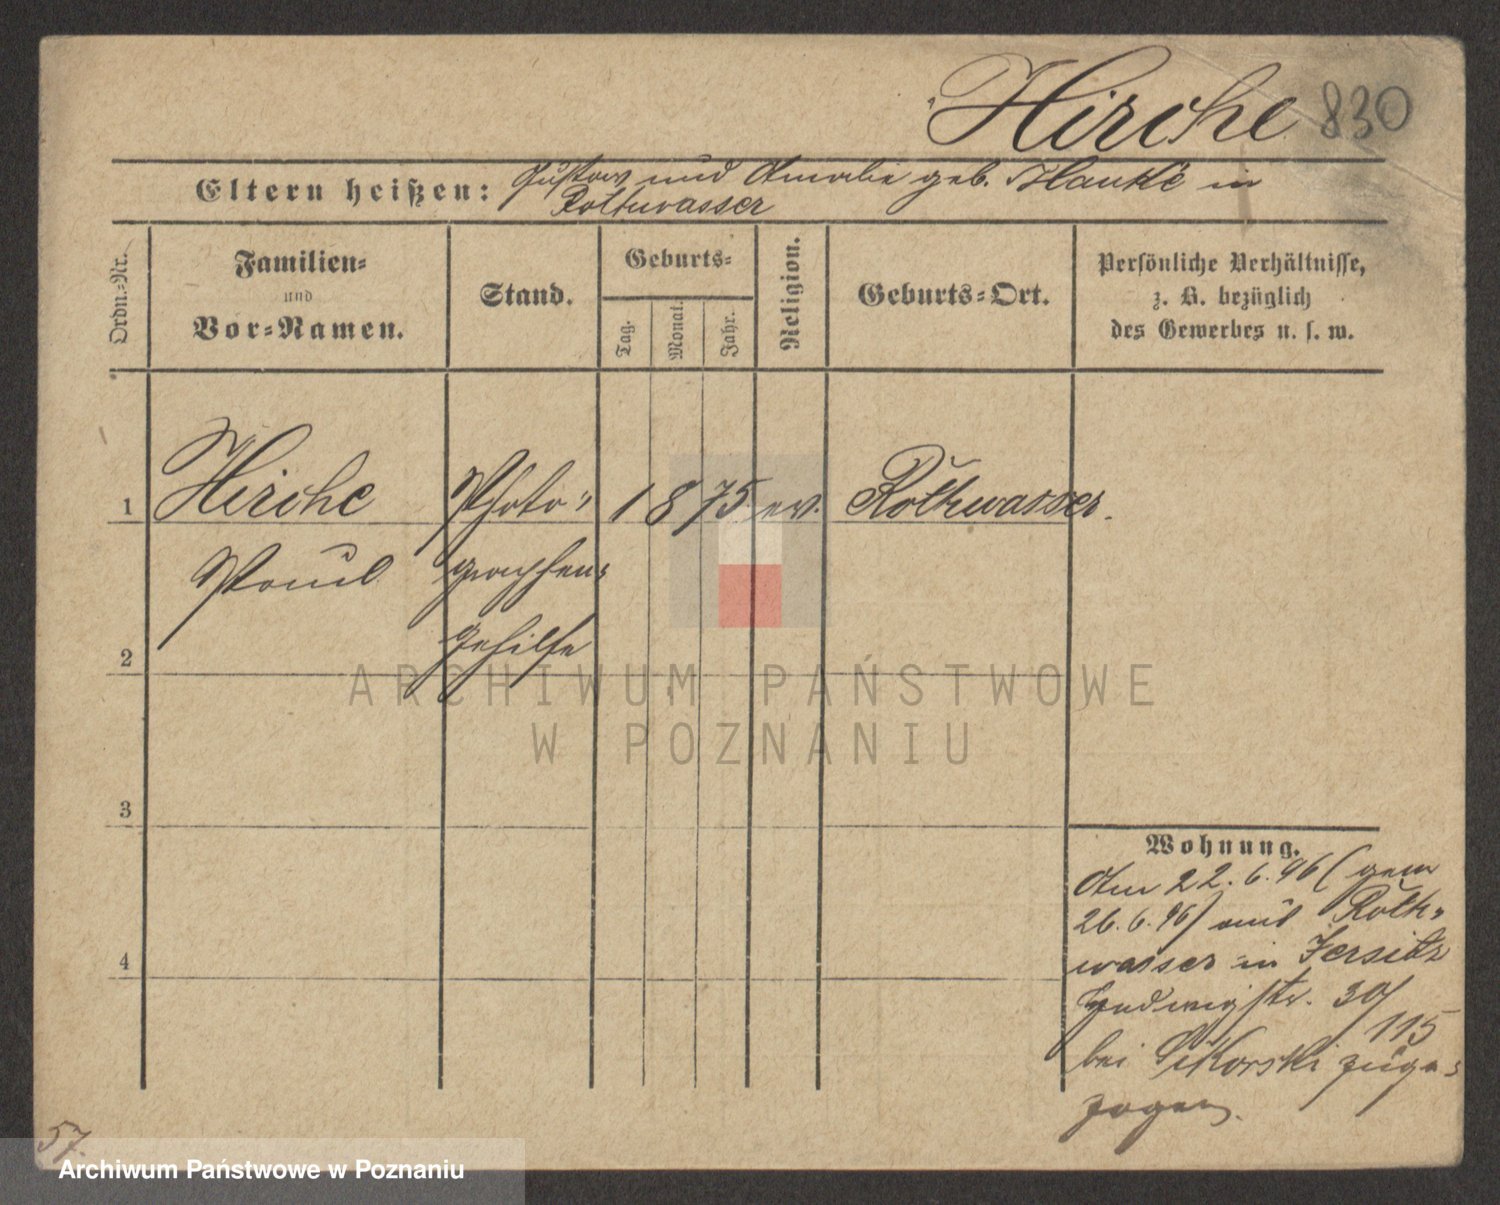 Hirche 830
Eltern heißen: Gustav und Amalie geb. in
Rothwasser
Ordn.-Nr.
Familien-
und
Vor-Namen.
Stand.
Geburts-
Tag.
Monat.
Jahr.
Religion.
Geburts-Ort.
Persönliche Verhältnisse,
z. B. bezüglich
des Gewerbes u. s. w.
1 Hirche Photo- 1875 ev. Rothwasser.
Paul graphen-
Gehilfe
2
3
4
Wohnung.
Am 22.6.96 (gem
26.6.96) aus Roth-
wasser in Jersitz
Hedwigstr. 30/
115
bei Sikorski zuge-
zogen.
57.
ARCHIWUM PAŃSTWOWE
W POZNANIU
Archiwum Państwowe w Poznaniu